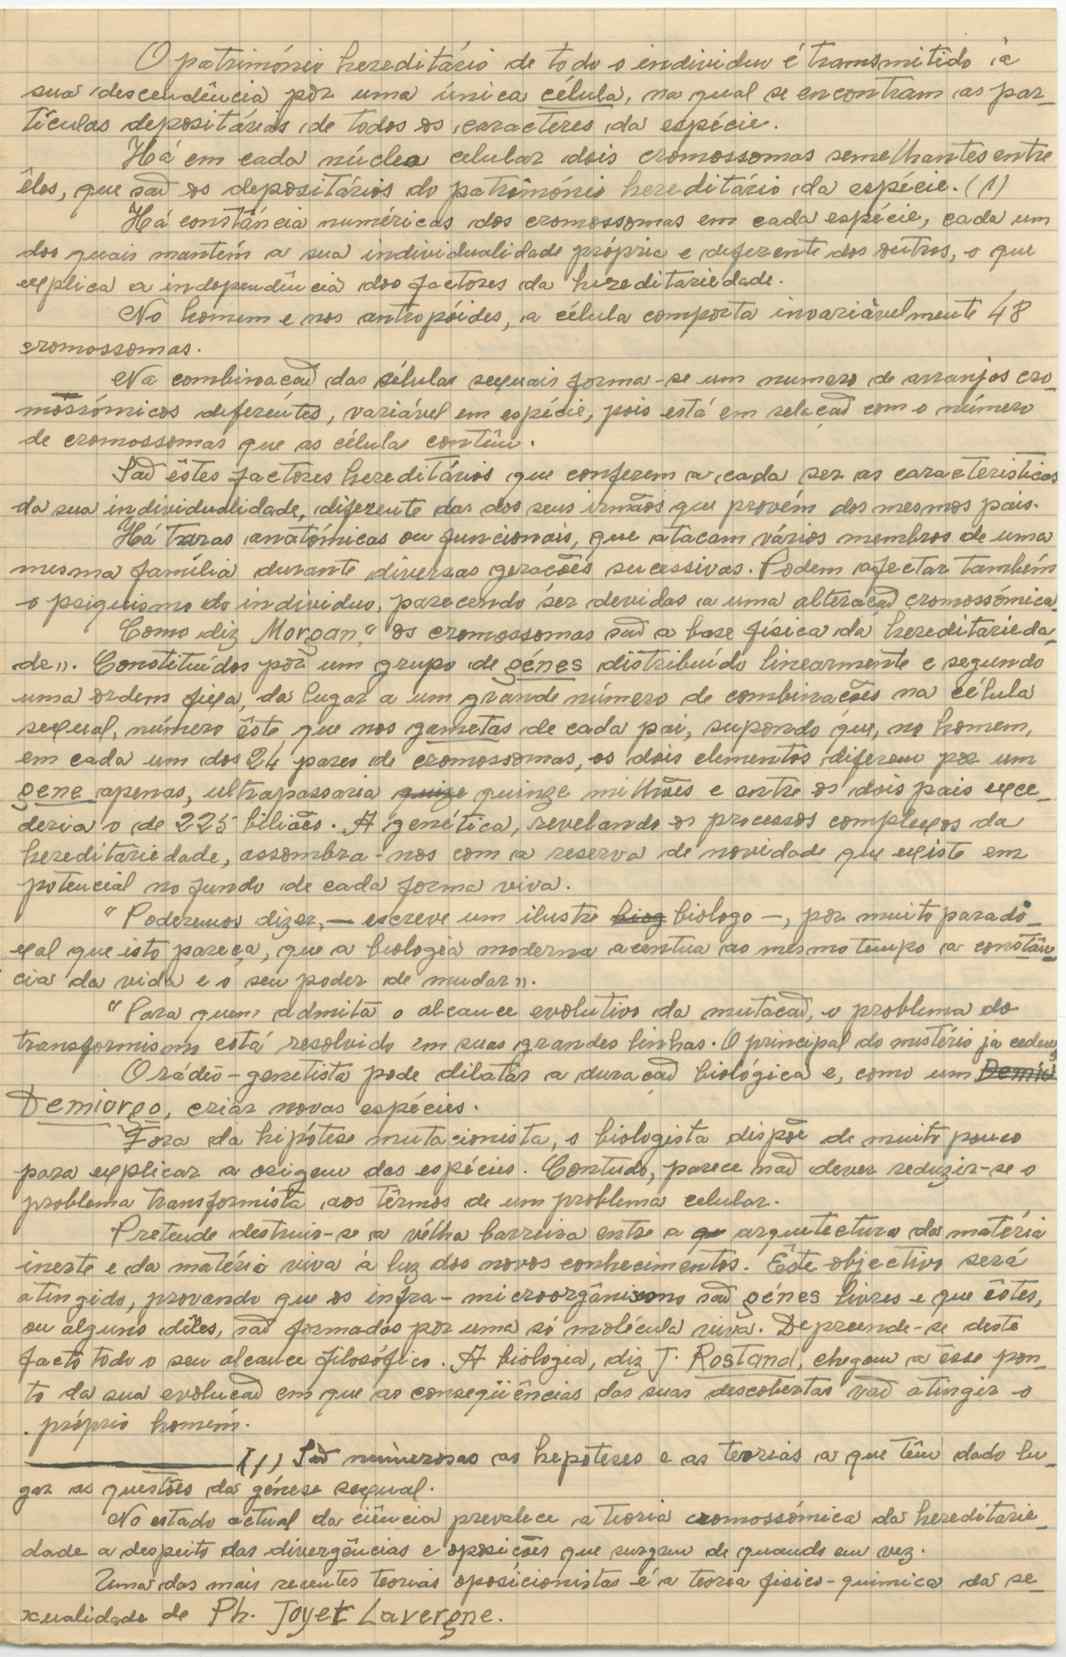 O património hereditário de todo o individuo é transmitido à
sua descendência por uma única célula, na qual se encontram as par-
tículas depositárias de todos os caracteres da espécie.
Há em cada núcleo celular dois cromossomas semelhantes entre
êles, que são os depositários do património hereditário da espécie. (1)
Há constância numéricas dos cromossomas em cada espécie, cada um
dos quais mantém a sua individualidade própria e diferente dos outros, o que
explica a independência dos factores da hereditariedade.
No homem e nos antropóides, a célula comporta invariàvelmente 48
cromossomas.
Na combinação das células sexuais forma-se um numero de arranjos cro-
mossómicos diferentes, variável em espécie, pois está em relação com o número
de cromossomas que as célula contêm.
São êstes factores hereditários que conferem a cada ser as caracteristicas
da sua individualidade, diferente das dos seus irmãos que provém dos mesmos pais.
Há taras anatómicas ou funcionais, que atacam vários membros de uma
mesma família durante diversas gerações sucessivas. Podem afectar também
o psiquismo do individuo, parecendo ser devidas a uma alteração cromossómica.
Como diz Morgan, "os cromossomas são a base física da hereditarieda-
de». Constituídos por um grupo de génes distribuído linearmente e segundo
uma ordem fixa, da lugar a um grande número de combinações na célula
sexual, número êste, que nos gametas de cada pai, supondo que, no homem,
em cada um dos 24 pares de cromossomas, os dois elementos diferem por um
gene apenas, ultrapassaria quize quinze milhões e entre os dois pais exce-
deria o de 225 biliões. A genética, revelando os processos complexos da
hereditariedade, assombra-nos com a reserva de novidade que existe em
potencial no fundo de cada forma viva.
"Poderemos dizer, — escreve um ilustre biog biologo —, por muito parado-
xal que isto pareça, que a biologia moderna acentua ao mesmo tempo a constân-
cia da vida e o seu poder de mudar».
"Para quem admita o alcance evolutivo da mutação, o problema do
transformismo está resolvido em suas grandes linhas. O principal do mistério já cedeu»
O rádio-genetista pode dilatar a duração biológica e, como um Demiu
Demiorgo, criar novas espécies.
Fora da hipótese mutacionista, o biologista dispõe de muito pouco
para explicar a origem das espécies. Contudo, parece não dever reduzir-se o
problema transformista aos têrmos de um problema celular.
Pretende destruir-se a vélha barreira entre a qu arquitectura da matéria
inerte e da matéria viva à luz dos novos conhecimentos. Êste objectivo será
atingido, provando que os infra-microorgânismo são génes livres e que êstes,
ou alguns dêles, são formados por uma só molécula viva. Depreende-se deste
facto todo o seu alcance filosófico. A biologia, diz J. Rostand, chegou a êsse pon-
to da sua evolução em que as conseqüências das suas descobertas vão atingir o
próprio homem.
(1) São númerosas as hepóteses e as teorias a que têm dado lu-
gar as questões da génese sexual.
No estado actual da ciência prevalece a teoria cromossómica da hereditarie-
dade a despeito das divergências e oposições que surgem de quando em vez.
Uma das mais recentes teorias oposicionistas é a teoria fisico-quimica da se-
xualidade de Ph. Joyet Lavergne.